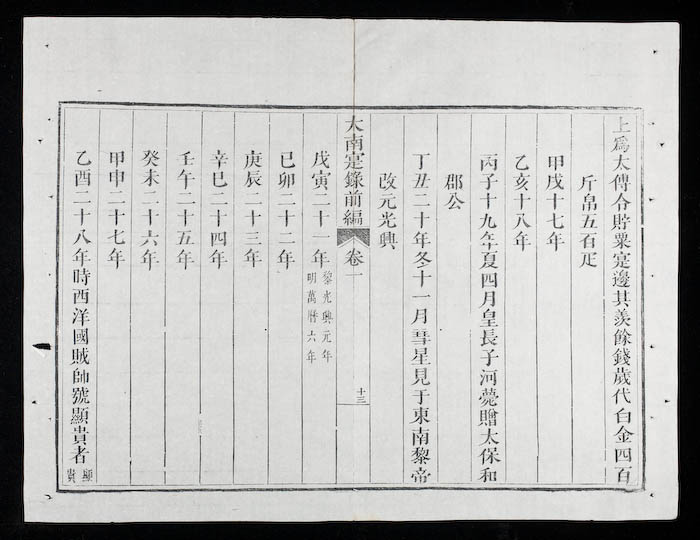 上爲太傅令貯粟寔邊其羨餘錢歲代白金四百
斤帛五百疋
甲戌十七年
乙亥十八年
丙子十九年夏四月皇長子河薨贈太保和
郡公
丁丑二十年冬十一月彗星見于東南黎帝
改元光興
大南寔錄前編 卷一 十三
戊寅二十一年黎光興元年
明萬曆六年
己卯二十二年
庚辰二十三年
辛巳二十四年
壬午二十五年
癸未二十六年
甲申二十七年
乙酉二十八年時西洋國賊帥號顯貴者顯
貴